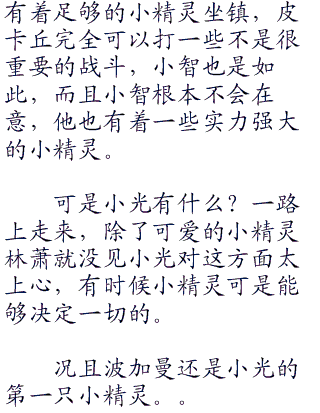 有着足够的小精灵坐镇，皮
卡丘完全可以打一些不是很
重要的战斗，小智也是如
此，而且小智根本不会在
意，他也有着一些实力强大
的小精灵。
可是小光有什么？一路
上走来，除了可爱的小精灵
林萧就没见小光对这方面太
上心，有时候小精灵可是能
够决定一切的。
况且波加曼还是小光的
第一只小精灵。。